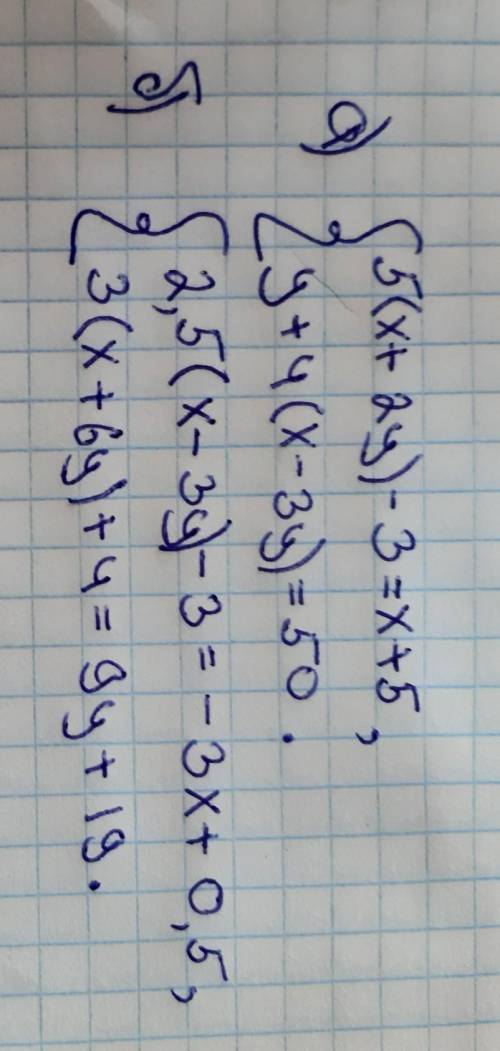 а) { 5(x + 2y) - 3 = x + 5,
y + 4(x - 3y) = 50.
б) { 2,5(x - 3y) - 3 = - 3x + 0,5,
3(x + 6y) + 4 = 9y + 19.